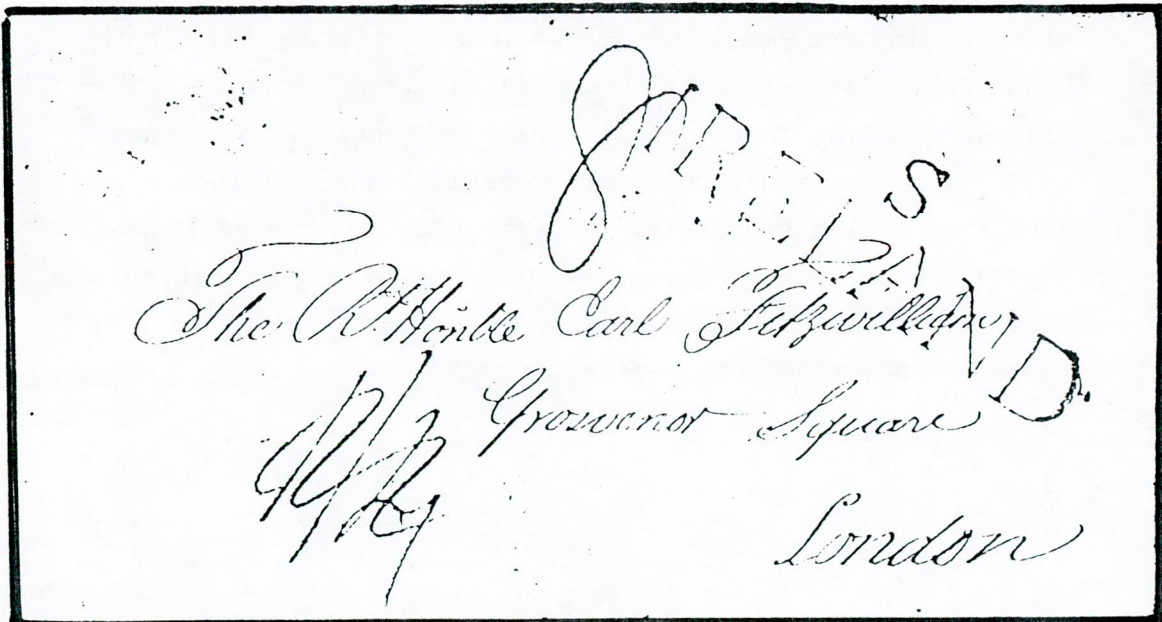 The Rt Honble Earl Fitzwilliam
Grosvenor Square
London